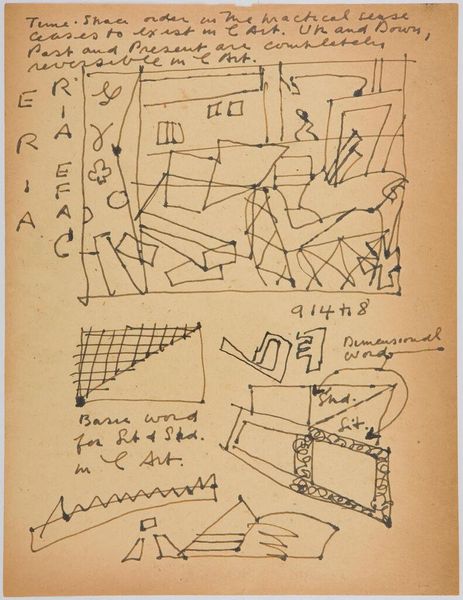 Time-Space order in the practical sense
ceases to exist in Art. Up and Down,
Past and Present are completely
reversible in Art.
ERIA
RIA EFAC
Dimensional
Words
Shd.
Sit.
Basic word
for Shd.
in Art.